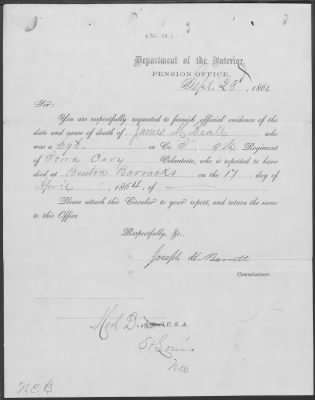 (No. 24.)
Department of the Interior,
PENSION OFFICE,
Sept. 23, 1864
Sir:
You are respectfully requested to furnish official evidence of the
date and cause of death of James M. Beall who
was a Sgt. in Co. 9th Regiment
of Iowa Cavy Volunteers, who is reported to have
died at Benton Barracks on the 17 day of
April, 1864, of —
Please attach this Circular to your report, and return the same
to this Office
Respectfully, &c.
Joseph H. Barrett
Commissioner.
Med. U. S. A.
St Louis
Mo
N.C.B